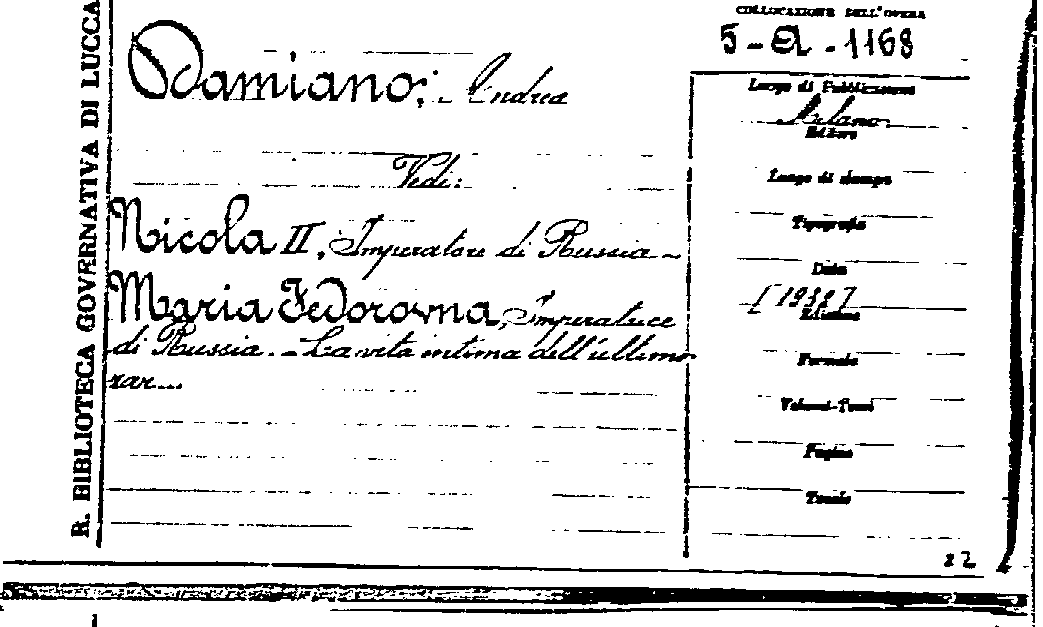 R. BIBLIOTECA GOVERNATIVA DI LUCCA
COLLOCAZIONE DELL'OPERA
5 - A - 1168
Damiano, Andrea
Vedi:
Nicola II, Imperatore di Russia -
Maria Fedorovna, Imperatrice
di Russia. - La vita intima dell'ultimo
zar...
Luogo di Pubblicazione
Milano
Editore
Luogo di stampa
Tipografia
Data
Edizione
Formato
Volumi-Tomi
Pagine
Tavole